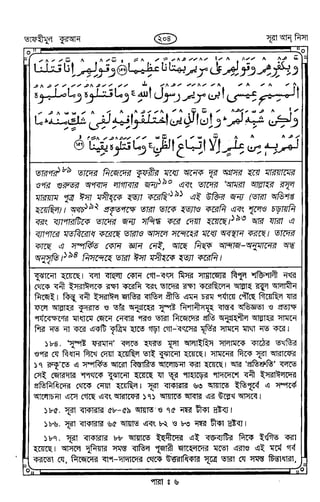 তাফহীমুল কুরআন
২০৪
সূরা আন্ নিসা
وَّبِكُفْرِهِمْ وَقَوْلِهِمْ عَلٰى مَرْيَمَ بُهْتَانًا عَظِيْمًا ﴿۱۵۶﴾ وَّقَوْلِهِمْ اِنَّا قَتَلْنَا
الْمَسِيْحَ عِيْسَى ابْنَ مَرْيَمَ رَسُوْلَ اللّٰهِ ۚ وَمَا قَتَلُوْهُ وَمَا صَلَبُوْهُ
وَلٰكِنْ شُبِّهَ لَهُمْ ؕ وَاِنَّ الَّذِيْنَ اخْتَلَفُوْا فِيْهِ لَفِيْ شَكٍّ مِّنْهُ ؕ مَا
لَهُمْ بِهٖ مِنْ عِلْمٍ اِلَّا اتِّبَاعَ الظَّنِّ ۚ وَمَا قَتَلُوْهُ يَقِيْنًا ﴿۱۵۷﴾
তারপর১৮৯ তাদের নিজেদের কুফরীর মধ্যে অনেক দূর অগ্রসর হয়ে মারয়ামের
ওপর গুরুতর অপবাদ লাগাবার জন্য১৯০ এবং তাদের 'আমরা আল্লাহর রসূল
মারয়াম পুত্র ঈসা মসীহকে হত্যা করেছি'১৯১ এই উক্তির জন্য (তারা অভিশপ্ত
হয়েছিল)। অথচ১৯২ প্রকৃতপক্ষে তারা তাকে হত্যাও করেনি এবং শূলেও চড়ায়নি
বরং ব্যাপারটিকে তাদের জন্য সন্দিগ্ধ করে দেয়া হয়েছে।১৯৩ আর যারা এ
ব্যাপারে মতবিরোধ করেছে তারাও আসলে সন্দেহের মধ্যে অবস্থান করছে। তাদের
কাছে এ সম্পর্কিত কোন জ্ঞান নেই, আছে নিছক আন্দাজ-অনুমানের অন্ধ
অনুসৃতি।১৯৪ নিসন্দেহে তারা ঈসা মসীহকে হত্যা করেনি।
বুঝানো হয়েছে। বলা বাহুল্য কোন গো-বৎস মিসর সাম্রাজ্যের বিপুল শক্তিশালী নখর
থেকে বনী ইসরাঈলকে রক্ষা করেনি বরং তাদের রক্ষা করেছিলেন আল্লাহ রব্বুল আলামীন
নিজেই। কিন্তু বনী ইসরাঈল জাতির বাতিল প্রীতি এমন চরম পর্যায়ে পৌঁছে গিয়েছিল যার
ফলে আল্লাহর কুদরাত ও তাঁর অনুগ্রহের সুস্পষ্ট নিশানীসমূহ বাস্তব অভিজ্ঞতা ও প্রত্যক্ষ
পর্যবেক্ষণের মাধ্যমে জেনে নেবার পরও তারা নিজেদের প্রতি অনুগ্রহশীল আল্লাহর সামনে
শির নত না করে একটি কৃত্রিম হাতে গড়া গো-বৎসের মূর্তির সামনে মাথা নত করে।
১৮৪. 'সুস্পষ্ট ফরমান' বলতে হযরত মূসা আলাইহিস সালামকে কাঠের তখতির
ওপর যে বিধান লিখে দেয়া হয়েছিল তাই বুঝানো হয়েছে। সামনের দিকে সূরা আরাফের
১৭ রুকূ'তে এ সম্পর্কে আরো বিস্তারিত আলোচনা করা হয়েছে। আর 'প্রতিশ্রুতি' বলতে
সেই জোরদার শপথকে বুঝানো হয়েছে যা তূর পাহাড়ের পাদদেশে বনী ইসরাঈলদের
প্রতিনিধিদের থেকে নেয়া হয়েছিল। সূরা বাকারার ৬৩ আয়াতে ইতিপূর্বে এ সম্পর্কে
আলোচনা এসে গেছে এবং সামনে আরাফের ১৭১ আয়াতে আবার এর উল্লেখ আসবে।
১৮৫. সূরা বাকারার ৫৮-৫৯ আয়াত ও ৭৫ নম্বর টীকা দ্রষ্টব্য।
১৮৬. সূরা বাকারার ৬৫ আয়াত এবং ৮২ ও ৮৩ নম্বর টীকা দ্রষ্টব্য।
১৮৭. সূরা বাকারার ৮৮ আয়াতে ইহুদীদের এই বক্তব্যটির দিকে ইংগিত করা
হয়েছে। আসলে দুনিয়ার সমস্ত বাতিল পূজারী জাহেলদের মতো এরাও এই মর্মে গর্ব
করতো যে, নিজেদের বাপ-দাদাদের থেকে উত্তরাধিকার সূত্রে তারা যে সমস্ত চিন্তাধারা,
পারা : ৬